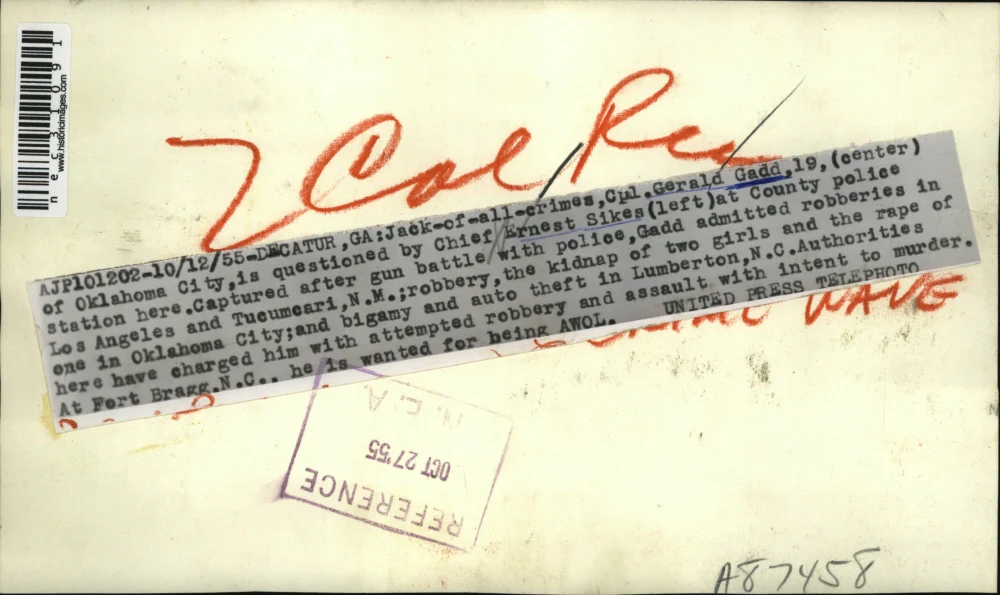 necC31091
www.historicimages.com
AJP101202-10/12/55-DECATUR,GA;Jack-of-all-crimes,Cpl.Gerald Gadd,19,(center)
of Oklahoma City,is questioned by Chief Ernest Sikes(left)at County police
station here.Captured after gun battle with police,Gadd admitted robberies in
Los Angeles and Tucumcari,N.M.;robbery,the kidnap of two girls and the rape of
one in Oklahoma City;and bigamy and auto theft in Lumberton,N.C.Authorities
here have charged him with attempted robbery and assault with intent to murder.
At Fort Bragg.N.C.. he is wanted for being AWOL. UNITED PRESS TELEPHOTO
WAVE
REFERENCE
OCT 27'55
N.E.A
A87458